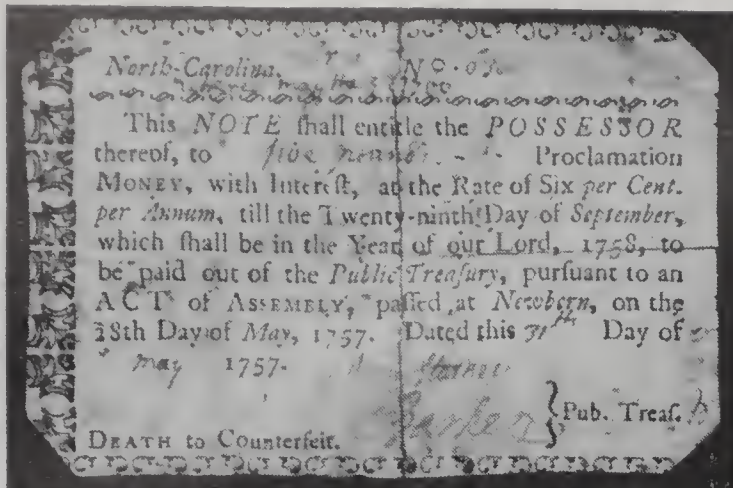 North-Carolina. No.
This NOTE ſhall entitle the POSSESSOR
thereof, to five pounds Proclamation
MONEY, with Intereſt, at the Rate of Six per Cent.
per Annum, till the Twenty-ninth Day of September,
which ſhall be in the Year of our Lord, 1758, to
be paid out of the Public Treaſury, purſuant to an
ACT of ASSEMBLY, paſſed at Newbern, on the
28th Day of May, 1757. Dated this 31th Day of
may 1757.
Barker } Pub. Treaſ.
DEATH to Counterfeit.